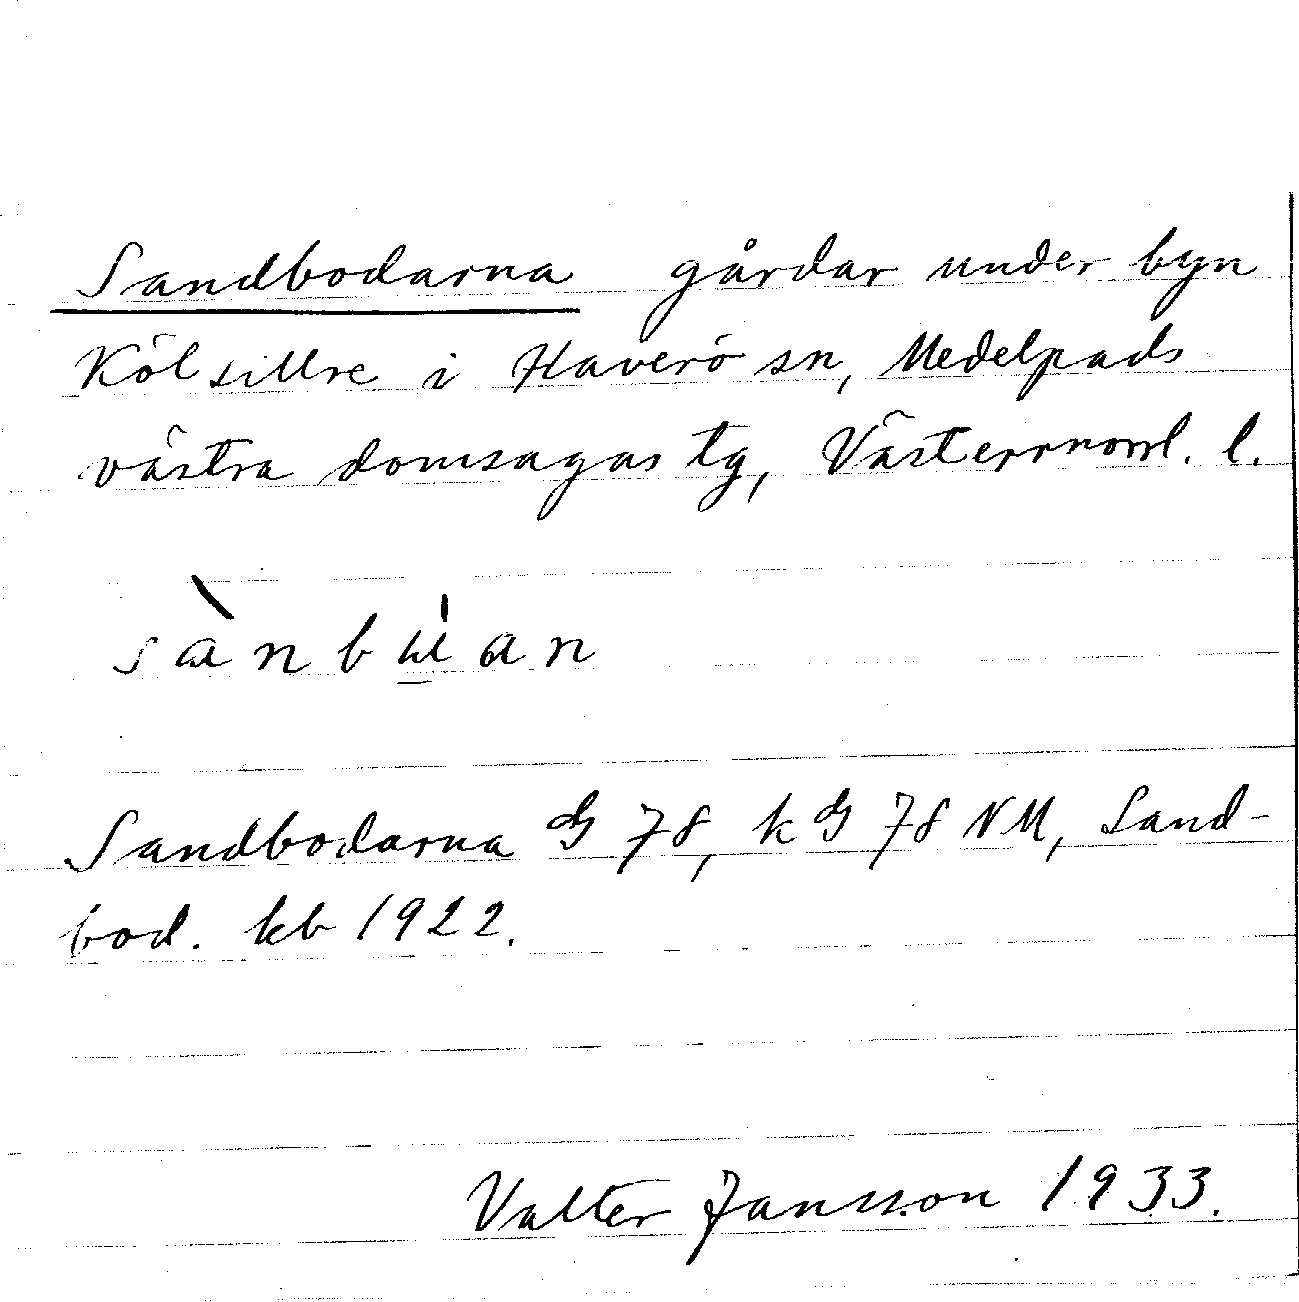 Sandbodarna gårdar under byn
Kölsillre i Haverö sn, Medelpads
västra domsagas tg, Västernorrl. l.
sànbɯ̀an
Sandbodarna G 78, k G 78 NM, Sand-
bod. kb 1922.
Valter Jansson 1933.